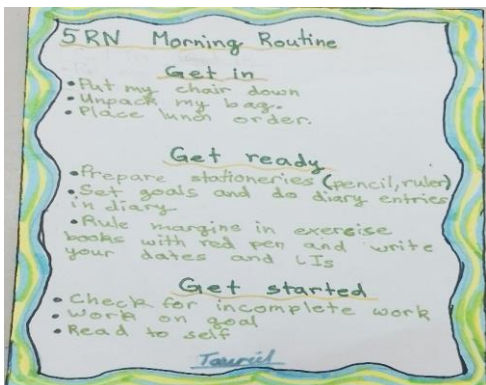 5RN Morning Routine
Get in
• Put my chair down
• Unpack my bag.
• Place lunch order.
Get ready
• Prepare stationeries (pencil, ruler)
• Set goals and do diary entries
in diary
• Rule margine in exercise
books with red pen and write
your dates and LIs
Get started
• Check for incomplete work
• Work on goal
• Read to self